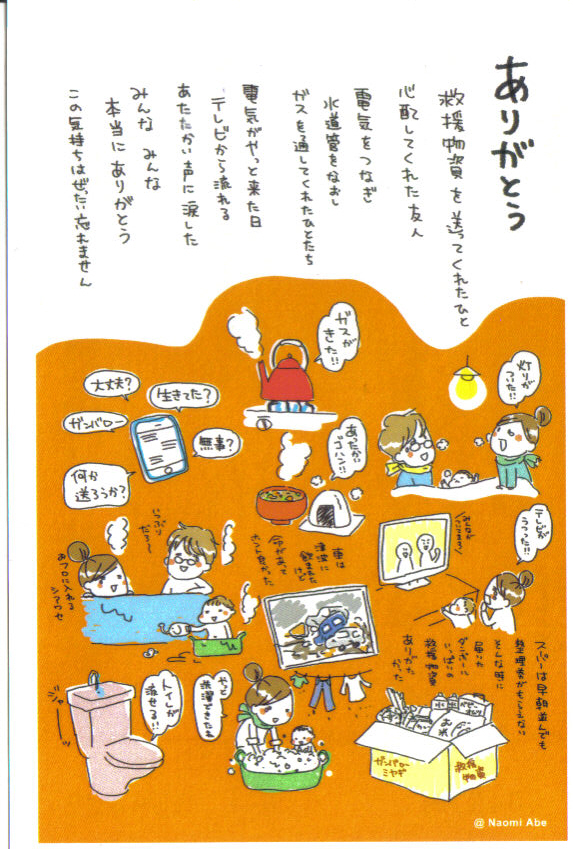 ありがとう
救援物資を送ってくれたひと
心配してくれた友人
電気をつなぎ
水道管をなおし
ガスを通してくれたひとたち
電気がやっと来た日
テレビから流れる
あたたかい声に涙した
みんな みんな
本当にありがとう
この気持ちはぜったい忘れません
灯りが
ついた!!
ガスが
きた!!
あったかい
ゴハン!!
大丈夫?
生きてた?
ガンバロー
無事?
何か
送ろうか?
テレビが
うつった!!
いつぶり
だろ〜
おフロに入れる
シアワセ
車は
津波に
飲まれた
けど
命があって
ホント良かった
スーパーは早朝並んでも
整理券がもらえない
そんな時に
届いた
ダンボールに
いっぱいの
救援物資
ありがた
かった
やっと
洗濯できたね
トイレが
流せる!!
ジャーーッ
水
水
お米
ガンバロー
ミヤギ
救援
物資
@ Naomi Abe